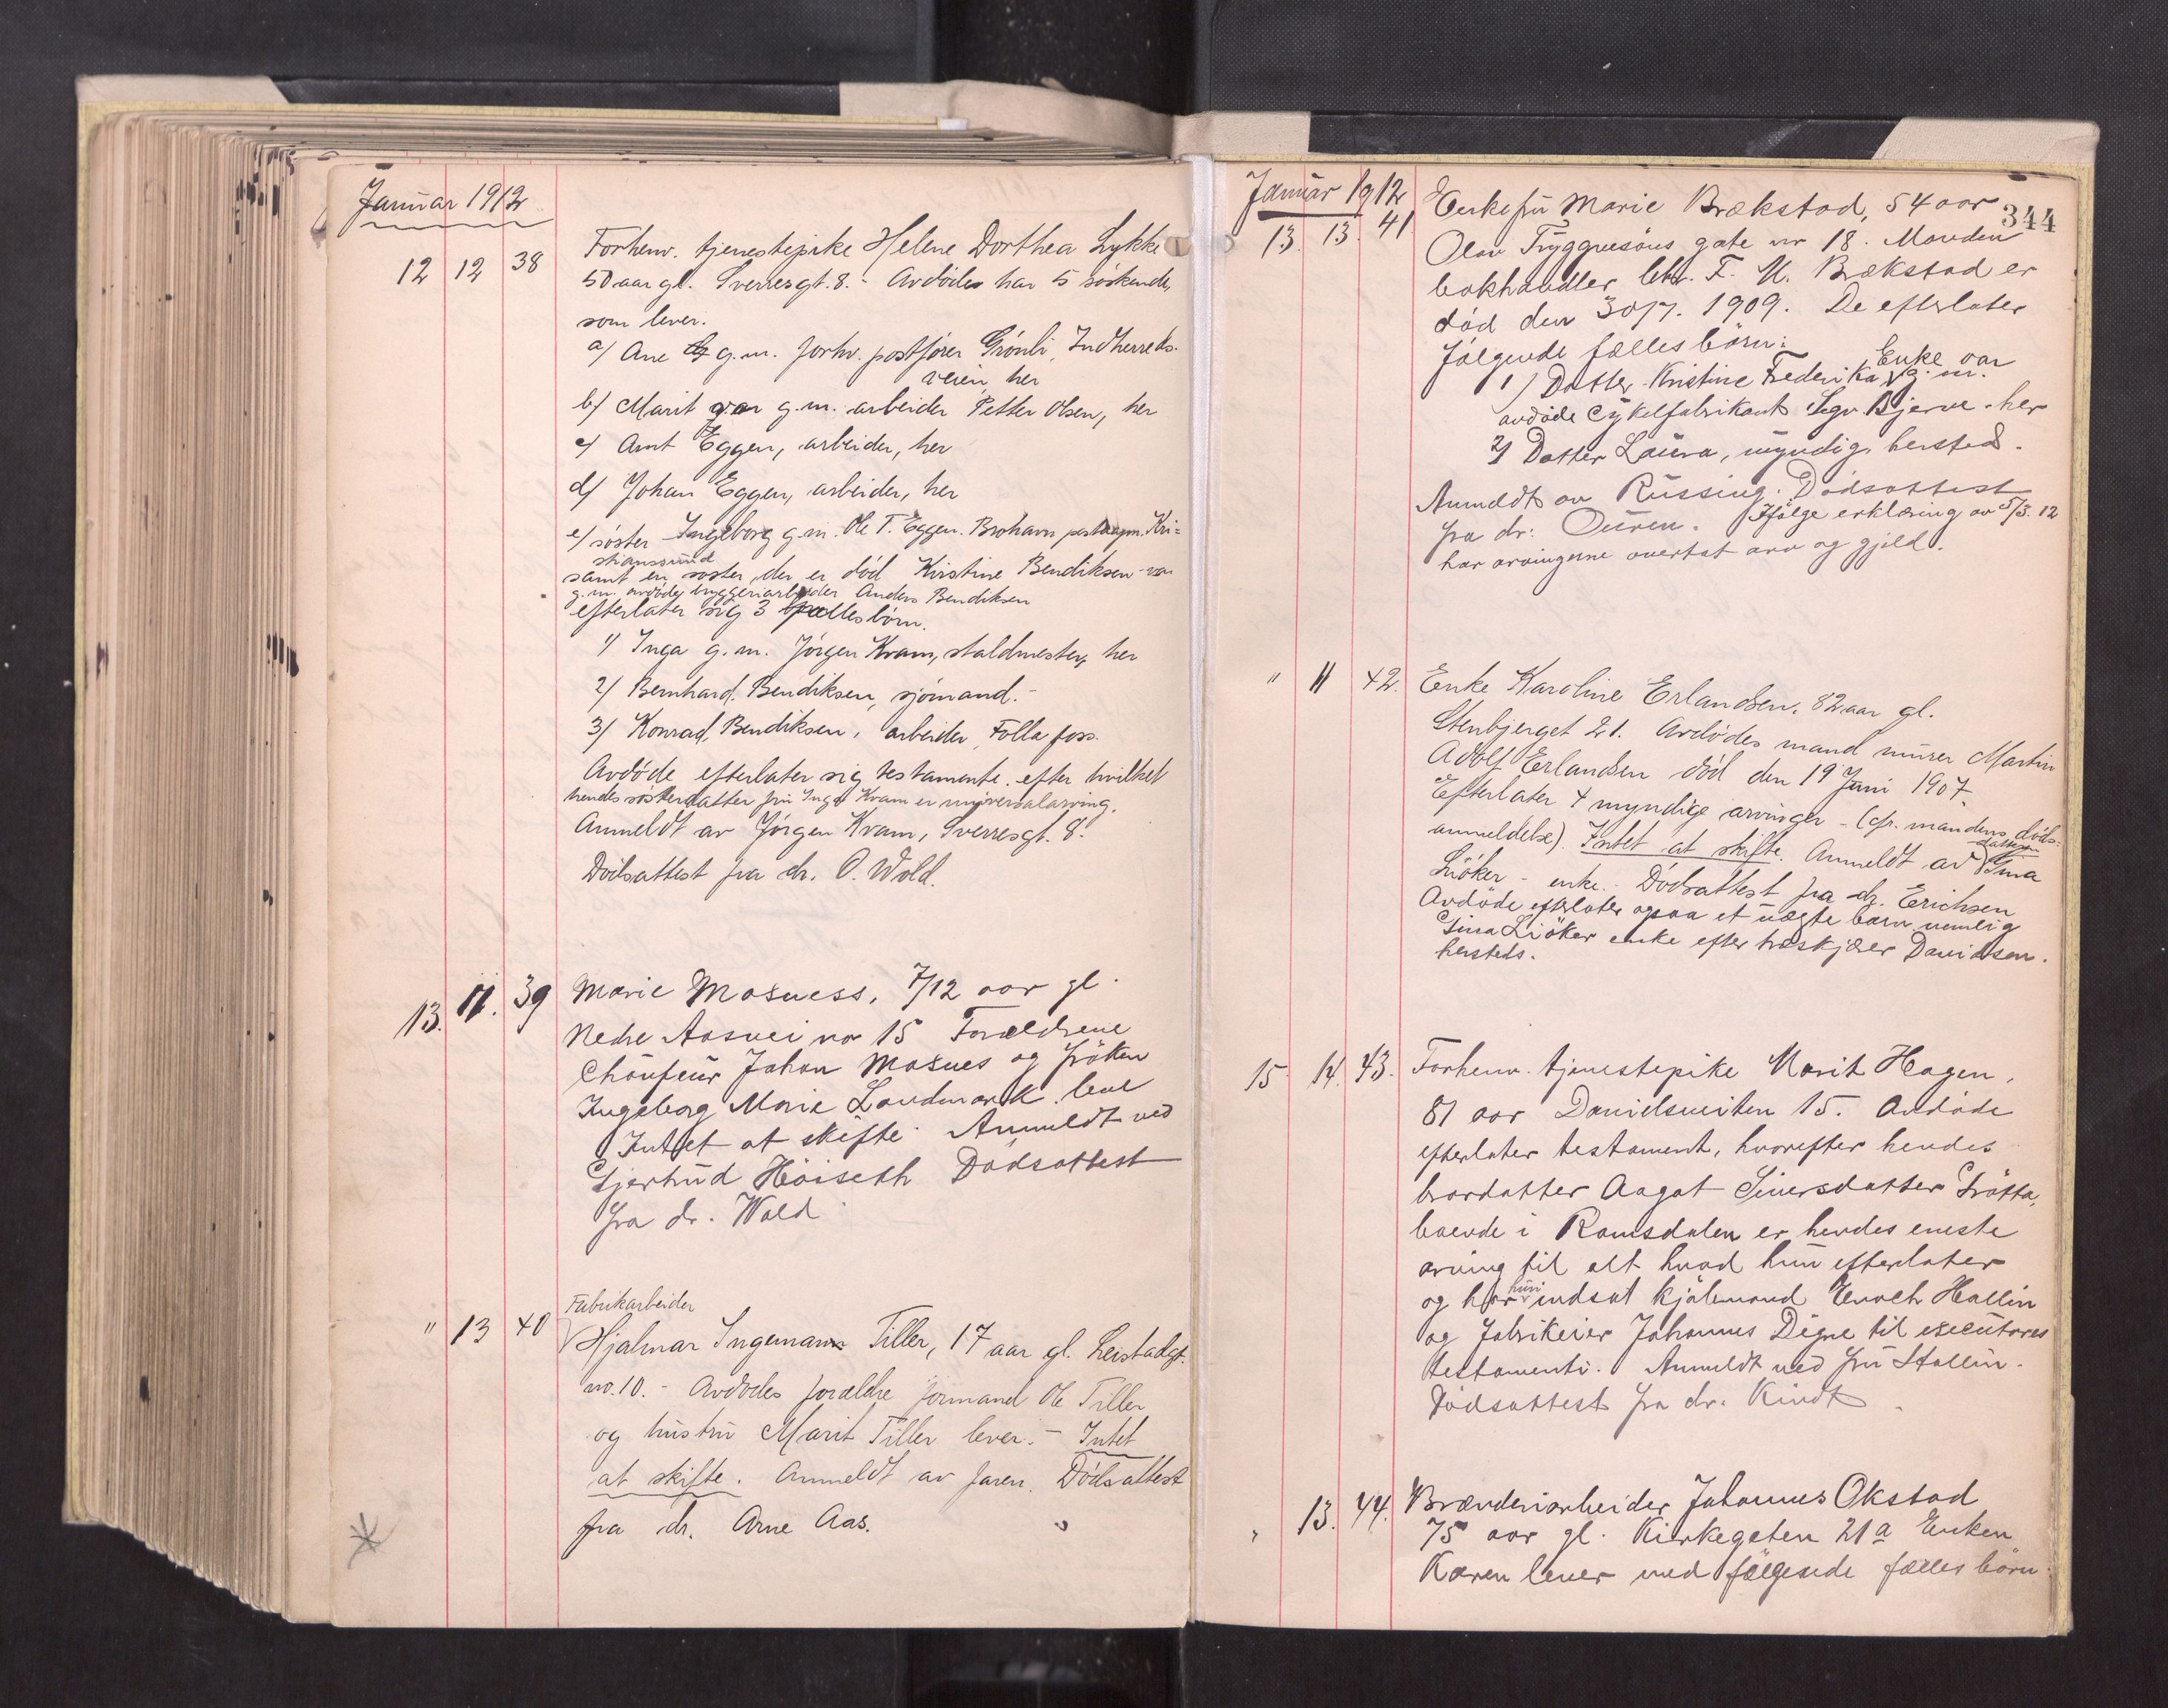 Januar 1912
12 12 38 Forhenv. tjenestepike Helene Dorthea Lykke
50 aar gl. Sverresgt. 8. - Avdøde har 5 søskende,
som lever.
a/ Ane g.m. forhv. postfører Grønli, Indherreds-
veien, her
b/ Marit var g.m. arbeider Petter Olsen, her
c/ Arnt Eggen, arbeider, her
d/ Johan Eggen, arbeider, her
e/ søster Ingeborg g.m. Ole T. Eggen. Brohavn Kri-
stianssund
samt en søster, der er død Kristine Bendiksen - var
g.m. avdøde bryggeriarbeider Anders Bendiksen
efterlater sig 3 fællesbørn.
1/ Inga g.m. Jørgen Kvam, staldmester, her
2/ Bernhard Bendiksen, sjømand. -
3/ Konrad Bendiksen, arbeider, Folla foss.
Avdøde efterlater sig testamente, efter hvilket
hendes søsterdatter fru Inga Kvam er universalarving.
Anmeldt av Jørgen Kvam, Sverresgt. 8.
Dødsattest fra dr. O. Wold.
13. 11. 39 Marie Mosness, 7/12 aar gl.
Nedre Aasvei no 15 Forældrene
Chaufeur Johan Mosnes og frøken
Ingeborg Marie Landmark leve
Intet at skifte. Anmeldt ved
Gjertrud Høiseth Dødsattest
fra dr. Wold.
Fabrikarbeider
" 13 40 Hjalmar Ingemann Tiller, 17 aar gl. Leistadgt.
no. 10. - Avdødes forældre formand Ole Tiller
og hustru Marit Tiller lever. - Intet
at skifte. Anmeldt av faren. Dødsattest
fra dr. Arne Aas.
344
Januar 1912
13. 13. 41 Enkefru Marie Brækstad, 54 aar
Olav Tryggvesøns gate nr 18. Manden
bokhandler F. M. Brækstad er
død den 30/7. 1909. De efterlater
følgende fælles børn:
1/ Datter Kristine Frederika Enke var g. m.
avdøde Cykelfabrikant Segv. Bjerve her
2/ Datter Laura, myndig, hersted.
Anmeldt av Russing. Dødsattest
fra dr. Ouren. Ifølge erklæring av 5/3. 12
har arvingerne overtat arv og gjæld.
" 11 42. Enke Karoline Erlandsen. 82 aar gl.
Stenbjerget 21. Avdødes mand murer Martin
Adolf Erlandsen død den 19 Juni 1907.
Efterlater 4 myndige arvinger - (cfr. mandens døds-
anmeldelse). Intet at skifte. Anmeldt av datteren Gina
Liøker - enke. - Dødsattest fra dr. Erichsen
Avdøde efterlater ogsaa et uægte barn nemlig
Gina Liøker enke efter træskjærer Davidsen.
hersteds.
15 14. 43. Forhenv. tjenestepike Marit Hagen,
81 aar Danielsveiten 15. Avdøde
efterlater testament, hvorefter hendes
brordatter Aagot Siversdatter Trøtta,
boende i Romsdalen er hendes eneste
arving til alt hvad hun efterlater
og har hun indsat kjøbmand Enoch Hallin
og fabrikeier Johannes Digre til executores
testamenti. Anmeldt ved fru Hallin.
Dødsattest fra dr. Kindt
" 13. 44. Brænderiarbeider Johannes Okstad
75 aar gl. Kirkegaten 21 a Enken
Karen lever med følgende fælles børn: